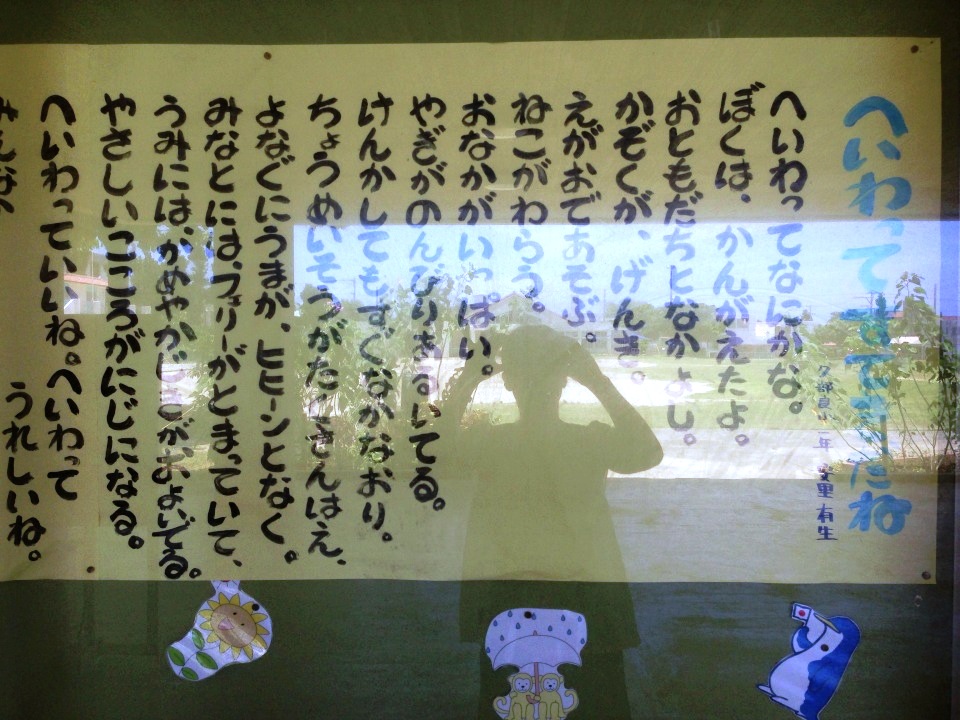 へいわってすてきだね
久部良小一年 安里 有生
へいわってなにかな。
ぼくは、かんがえたよ。
おともだちとなかよし。
かぞくが、げんき。
えがおであそぶ。
ねこがわらう。
おなかがいっぱい。
やぎがのんびりあるいてる。
けんかしてもすぐなかなおり。
ちょうめいそうがたくさんはえ、
よなぐにうまが、ヒヒーンとなく。
みなとには、フェリーがとまっていて、
うみには、かめやかじきがおよいでる。
やさしいこころがにじになる。
へいわっていいね。へいわって
うれしいね。
みんなの